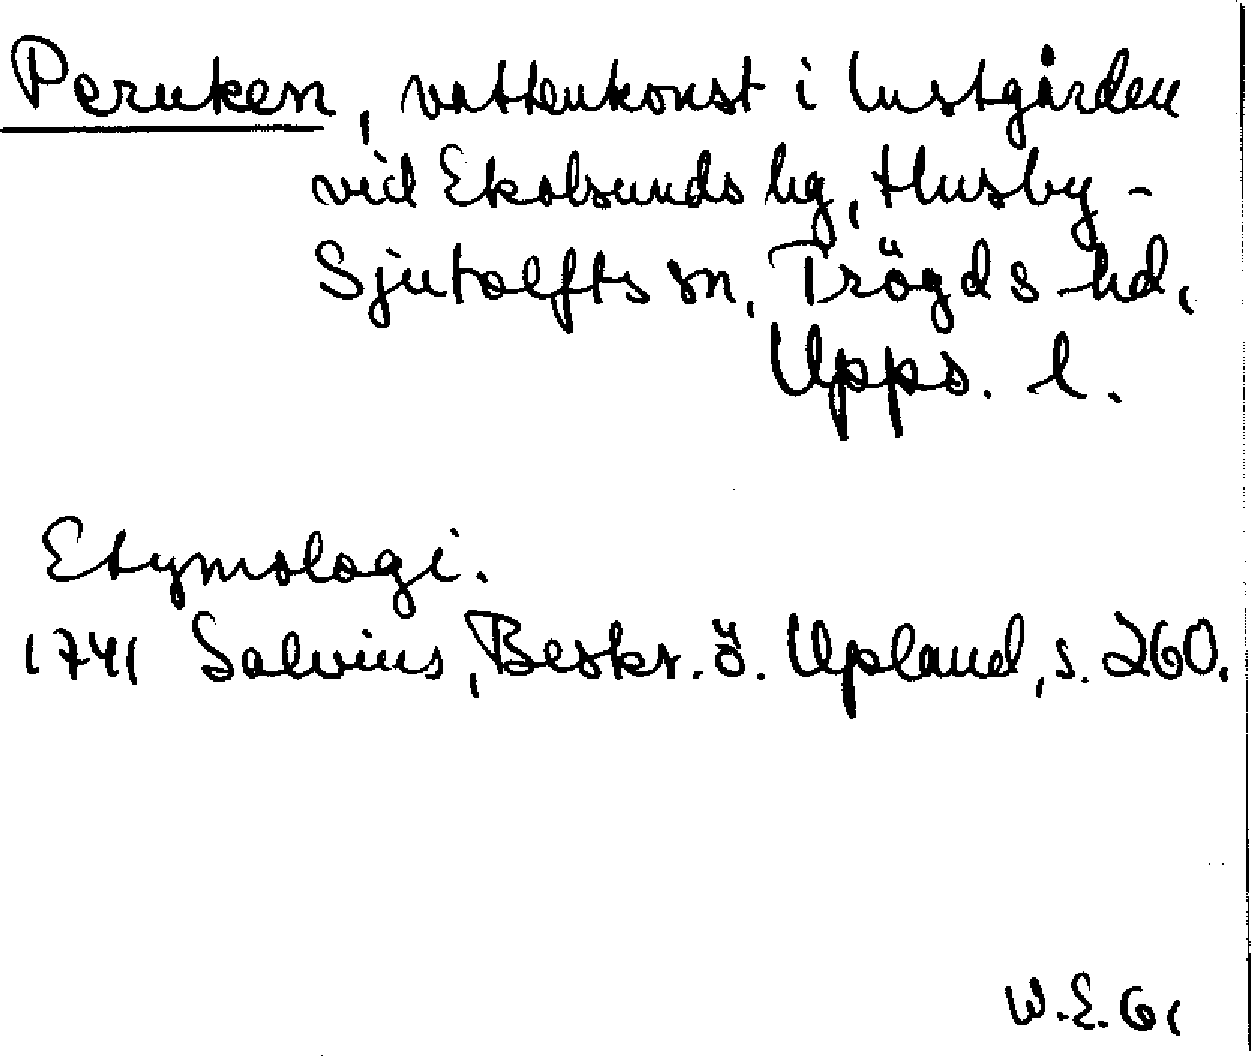 Peruken, vattenkonst i lustgården
vid Ekolsunds hg, Husby-
Sjutolfts sn, Trögds hd,
Upps. l.
Etymologi.
1741 Salvius, Beskr. ö. Upland, s. 260.
W.E.G.